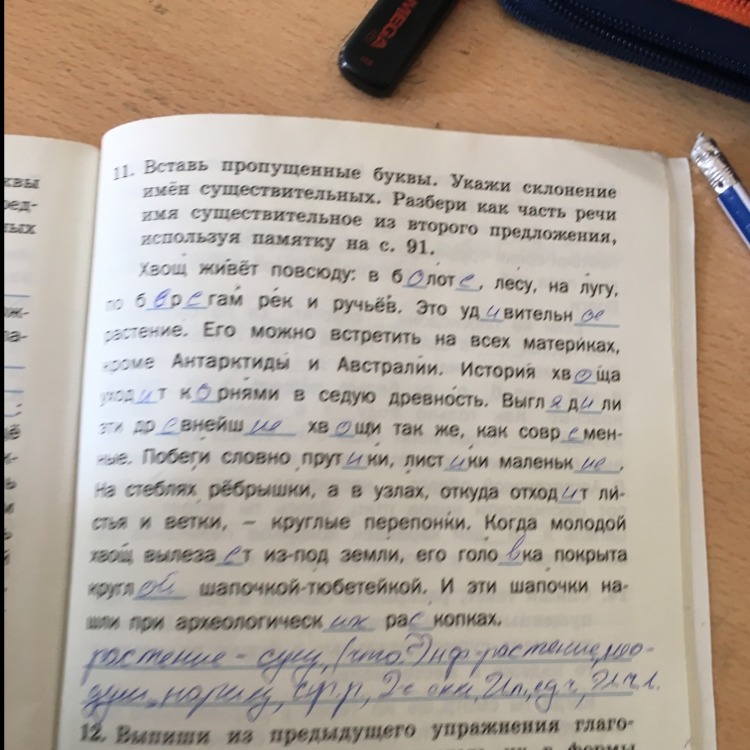 OMEGA
11. Вставь пропущенные буквы. Укажи склонение
имён существительных. Разбери как часть речи
имя существительное из второго предложения,
используя памятку на с. 91.
Хвощ живёт повсюду: в болоте, лесу, на лугу,
по берегам рек и ручьёв. Это удивительное
растение. Его можно встретить на всех материках,
кроме Антарктиды и Австралии. История хвоща
уходит корнями в седую древность. Выглядили
эти древнейшие хвощи так же, как современ-
ные. Побеги словно прутики, листики маленькие.
На стеблях рёбрышки, а в узлах, откуда отходит ли-
стья и ветки, – круглые перепонки. Когда молодой
хвощ вылезает из-под земли, его головка покрыта
круглой шапочкой-тюбетейкой. И эти шапочки на-
шли при археологических раскопках.
растение - сущ, (что?) нф-растение, нео-
душ, нариц, ср.р, 2е скл, И.п, ед.ч,
12. Выпиши из предыдущего упражнения глаго-
квы
ред-
ных